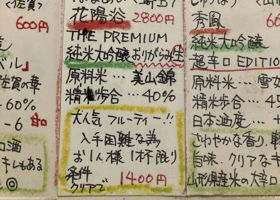 600円
ベル」
の華
60%
-6
日本酒
キレもある
花陽浴
2800円
THE PREMIUM
純米大吟醸 おりがらみ生
原料米…美山錦
精米歩合…40%
大人気フルーティー!!
入手困難な為
お1人様1杯限り
条件
クリアで
1400円
秀鳳
純米大吟醸
超辛口EDITION
原料米…雪女
精米歩合…
日本酒度…+
さわやかな香り、
旨味。クリアな
山形県産米の大辛口